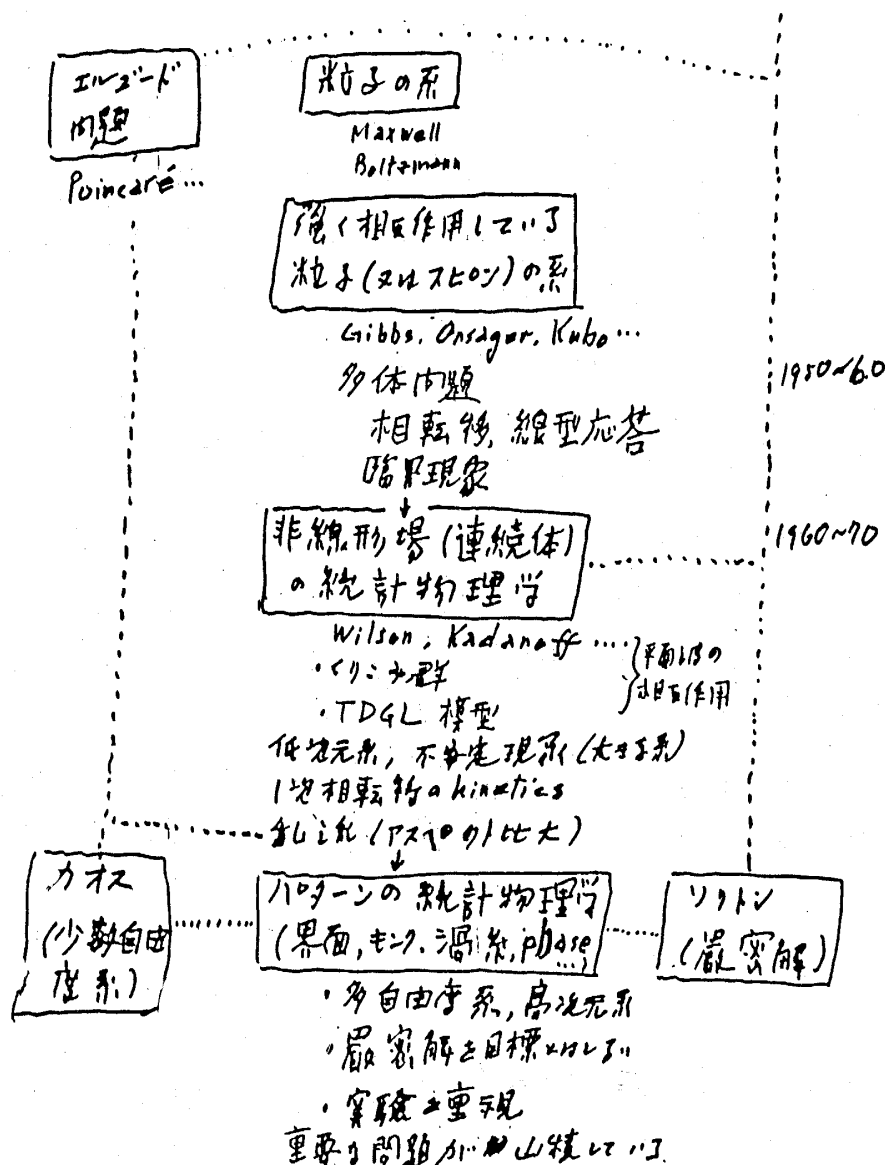 エルゴード
問題
Poincaré…
粒子の系
Maxwell
Boltzmann
強く相互作用している
粒子(又はスピン)の系
Gibbs, Onsager, Kubo…
多体問題
相転移, 線型応答
臨界現象
1950~60
非線形場(連続体)
の統計物理学
1960~70
Wilson, Kadanoff…
・くりこみ群
・TDGL 模型
平面波の
相互作用
低次元系, 不安定現象(大きな系)
1次相転移のkinetics
乱流(アスペクト比大)
カオス
(少数自由
度系)
パターンの統計物理学
(界面, キンク, 渦糸, phase…)
ソリトン
(厳密解)
・多自由度系, 高次元系
・厳密解を目標とはしない
・実験を重視
重要な問題が山積している